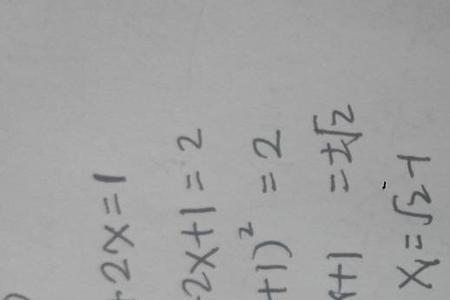 2x=1
2x+1=2
+1)²=2
x+1=±√2
x₁=√2-1